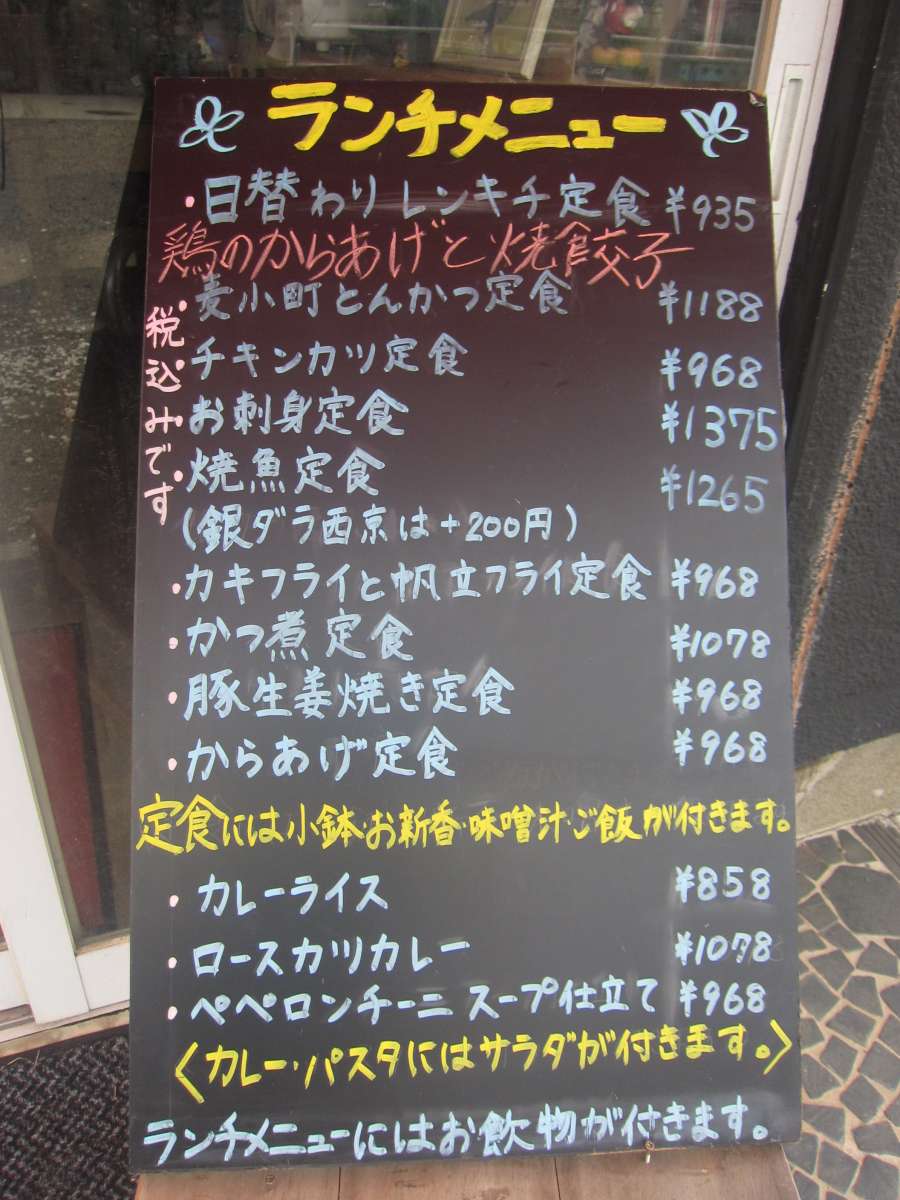 ランチメニュー
・日替わりレンキチ定食 ¥935
鶏のからあげと焼餃子
・麦小町とんかつ定食 ¥1188
・チキンカツ定食 ¥968
・お刺身定食 ¥1375
・焼魚定食 ¥1265
(銀ダラ西京は+200円)
・カキフライと帆立フライ定食 ¥968
・かつ煮定食 ¥1078
・豚生姜焼き定食 ¥968
・からあげ定食 ¥968
税込みです
定食には小鉢・お新香・味噌汁・ご飯が付きます。
・カレーライス ¥858
・ロースカツカレー ¥1078
・ペペロンチーニ スープ仕立て ¥968
〈カレー・パスタにはサラダが付きます。〉
ランチメニューにはお飲物が付きます。